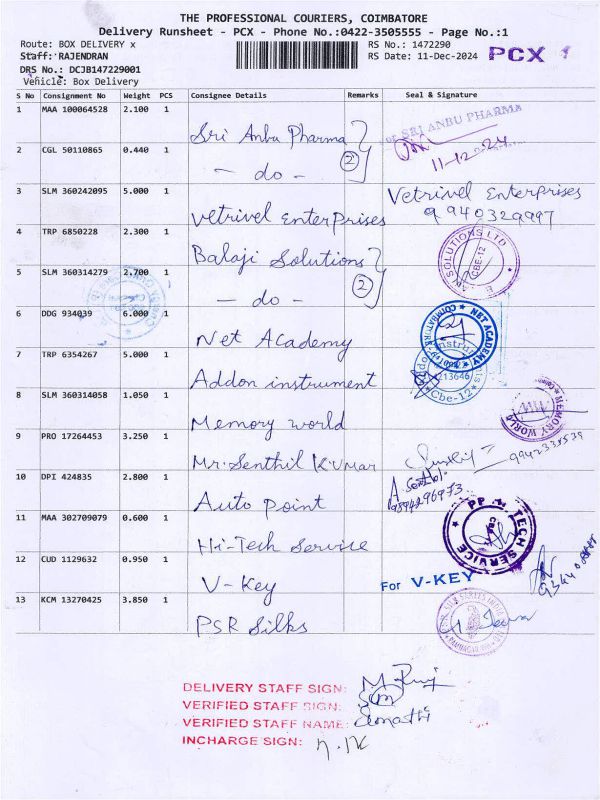 THE PROFESSIONAL COURIERS, COIMBATORE
Delivery Runsheet - PCX - Phone No.:0422-3505555 - Page No.:1
Route: BOX DELIVERY x RS No.: 1472290 PCX 1
Staff: RAJENDRAN RS Date: 11-Dec-2024
DRS No.: DCJB147229001
Vehicle: Box Delivery
S No Consignment No Weight PCS Consignee Details Remarks Seal & Signature
1 MAA 100064528 2.100 1 Sri Anbu Pharma For SRI ANBU PHARMA
11-12-24
2 CGL 50110865 0.440 1 - do - 2
3 SLM 360242095 5.000 1 Vetrivel Enterprises Vetrivel Enterprises
9940329997
4 TRP 6850228 2.300 1 Balaji Solutions SOLUTIONS LTD CBE-12
5 SLM 360314279 2.700 1 - do - 2
6 DDG 934039 6.000 1 Net Academy NET ACADEMY COIMBATORE
7 TRP 6354267 5.000 1 Addon instrument Cbe-12
8 SLM 360314058 1.050 1 Memory world MEMORY WORLD
9 PRO 17264453 3.250 1 Mr. Senthil Kumar
10 DPI 424835 2.800 1 Auto point
11 MAA 302709079 0.600 1 Hi-Tech Service TECH SERVICE
12 CUD 1129632 0.950 1 V-Key For V-KEY
13 KCM 13270425 3.850 1 PSR Silks
DELIVERY STAFF SIGN:
VERIFIED STAFF SIGN:
VERIFIED STAFF NAME:
INCHARGE SIGN: